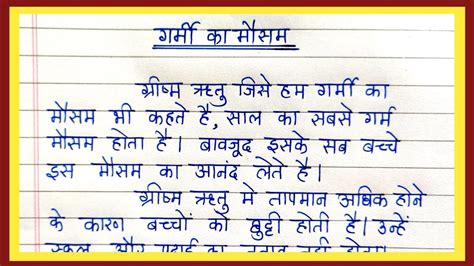 गर्मी का मौसम
ग्रीष्म ऋतु जिसे हम गर्मी का
मौसम भी कहते है, साल का सबसे गर्म
मौसम होता है। बावजूद इसके सब बच्चे
इस मौसम का आनंद लेते है।
ग्रीष्म ऋतु मे तापमान अधिक होने
के कारण बच्चों को छुट्टी होती है। उन्हें
स्कूल और पढाई का तनाव नही होता।